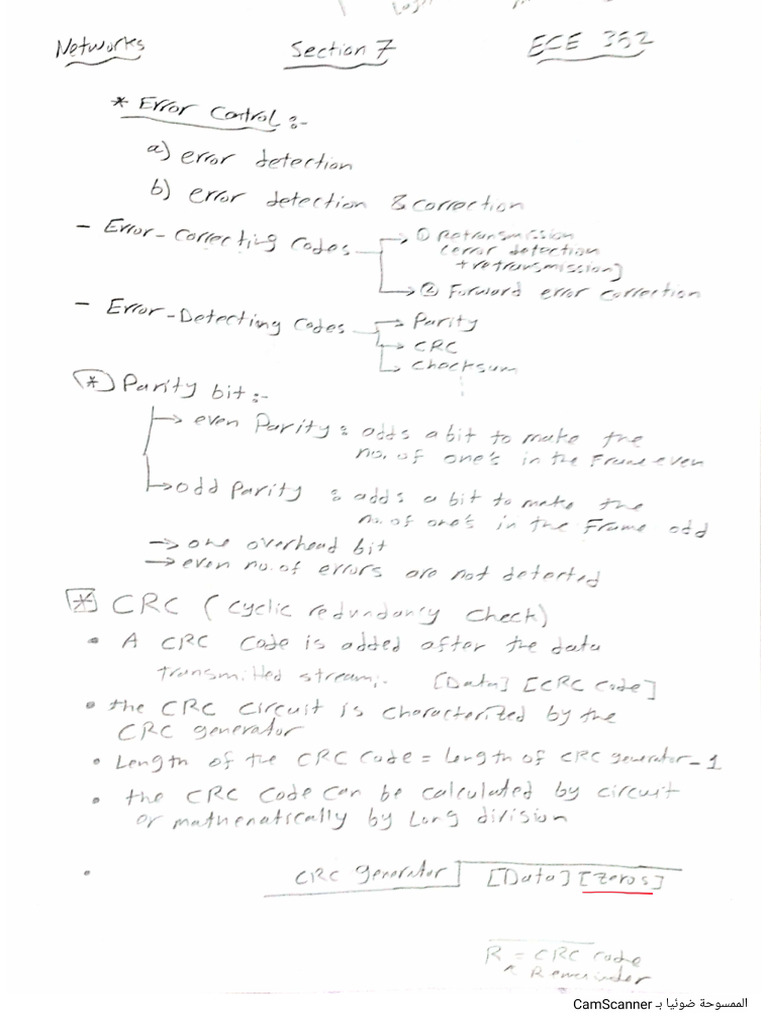 Networks Section 7 ECE 352
* Error Control :-
a) error detection
b) error detection & correction
- Error-Correcting Codes → ① Retransmission
[error detection
+retransmission]
→ ② Forward error correction
- Error-Detecting Codes → Parity
→ CRC
→ Checksum
* Parity bit :-
→ even Parity : adds a bit to make the
no. of one's in the Frame even
→ odd Parity : adds a bit to make the
no. of one's in the Frame odd
→ one overhead bit
→ even no. of errors are not detected
* CRC (cyclic redundancy check)
• A CRC Code is added after the data
transmitted stream. [Data] [CRC Code]
• the CRC circuit is characterized by the
CRC generator
• Length of the CRC Code = Length of CRC generator - 1
• the CRC Code can be calculated by circuit
or mathematically by Long division
• CRC generator [Data] [Zeros]
R = CRC Code
= Remainder
الممسوحة ضوئيا بـ CamScanner